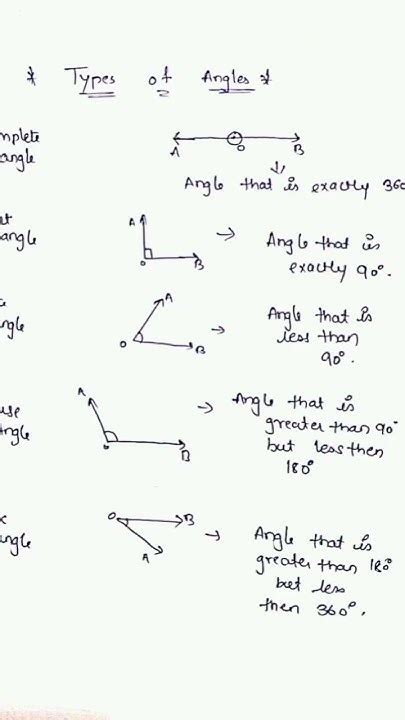 * Types of Angles *
mplete
angle
A O B
Angle that is exactly 360
angle
A
O B
Angle that is
exactly 90°.
A
O B
Angle that is
less than
90°.
use
A
O B
Angle that is
greater than 90°
but less then
180°
angle
O B
A
Angle that is
greater than 180°
but less
then 360°.